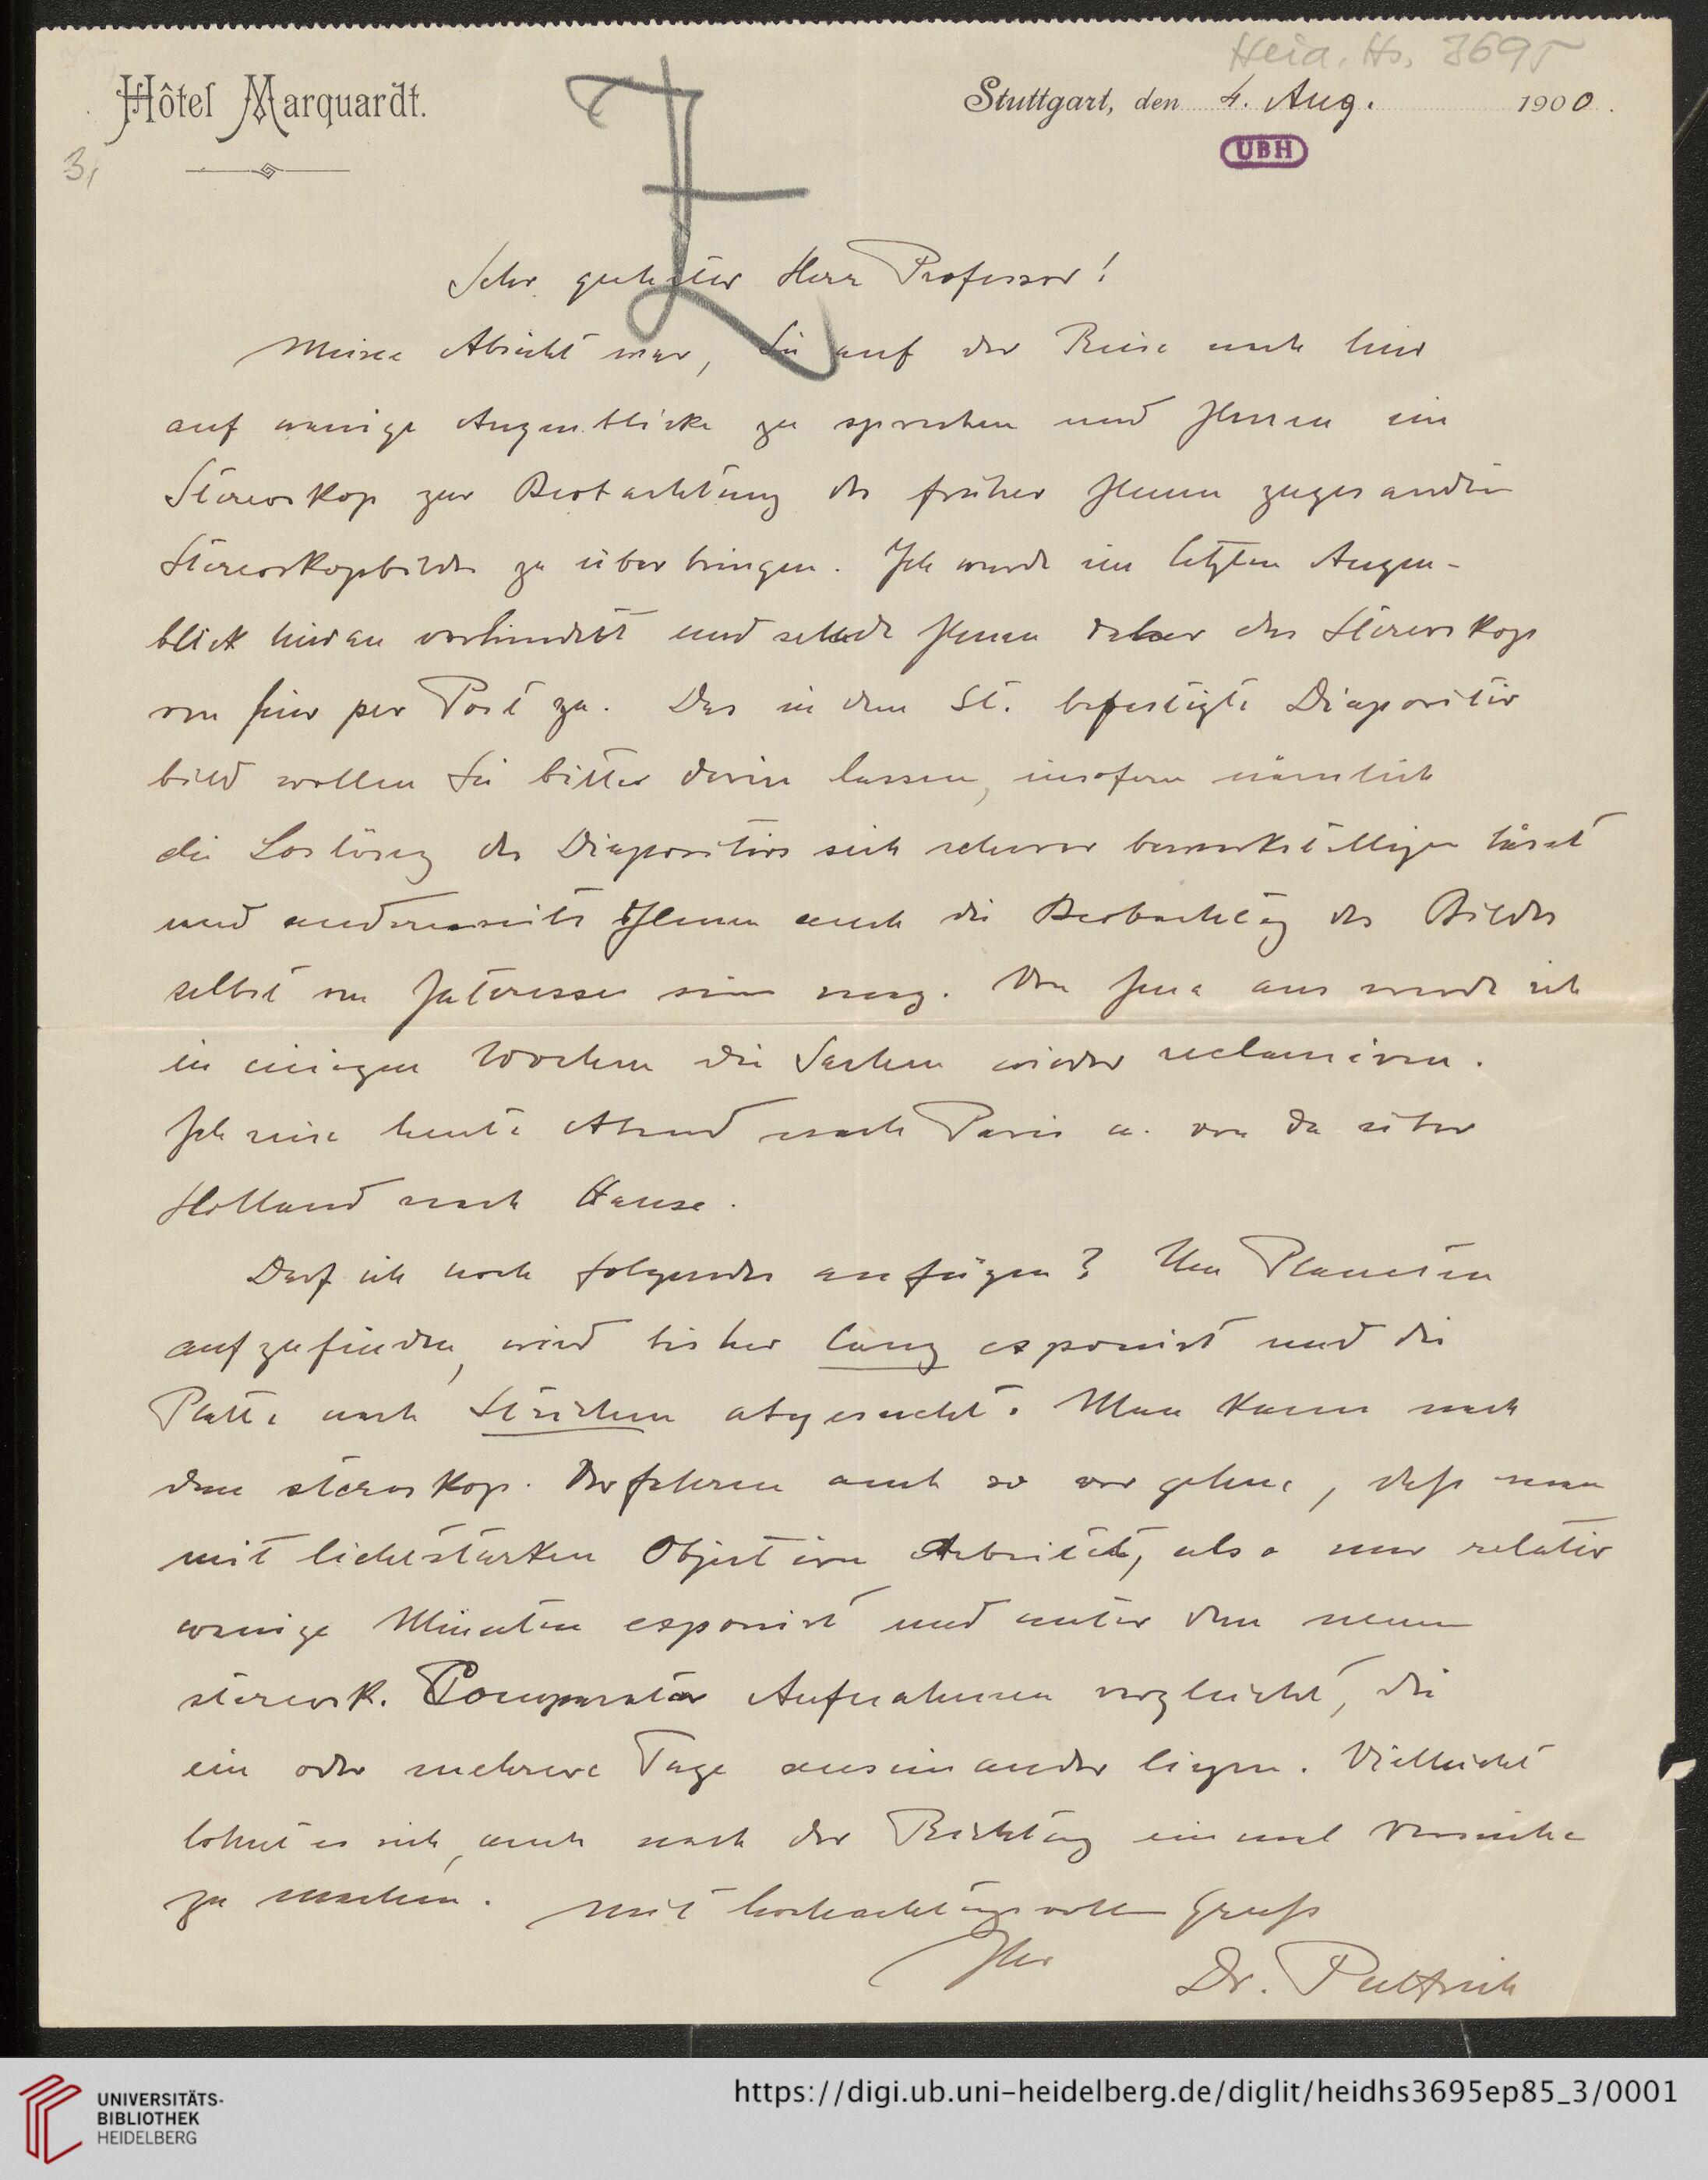 Heid. Hs. 3695
Hôtel Marquardt.
Stuttgart, den 4. Aug. 1900.
UBH
3,
Sehr geehrter Herr Professor!
Meine Absicht war, Sie auf der Reise nach hier
auf wenige Augenblicke zu sprechen und Ihnen ein
Stereoskop zur Beobachtung der früher Ihnen zugesandten
Stereoskopbilder zu überbringen. Ich wurde im letzten Augen-
blick hieran verhindert und sende Ihnen daher das Stereoskop
von hier per Post zu. Das in dem St. befestigte Diapositiv
bild wollen Sie bitte darin lassen, insofern nämlich
die Loslösung des Diapositivs sich schwer bewerkstelligen lässt
und andererseits Ihnen auch die Beobachtung des Bildes
selbst von Interesse sein mag. Von Jena aus werde ich
in einigen Wochen die Sachen wieder reclamiren.
Ich reise heute Abend nach Paris u. von da über
Holland nach Hause.
Darf ich noch folgendes anfügen? Um Planeten
aufzufinden, wird bisher lang exponirt und die
Platte nach Strichen abgesucht. Man kann nach
dem stereoskop. Verfahren auch so vorgehen, daß man
mit lichtstarken Objectiven arbeitet, also nur relativ
wenige Minuten exponirt und unter dem neuen
stereosk. Comparator Aufnahmen vergleicht, die
ein oder mehrere Tage auseinander liegen. Vielleicht
lohnt es sich, auch nach der Richtung einmal Versuche
zu machen. Mit hochachtungsvollem Gruß
Ihr Dr. Pulfrich
UNIVERSITÄTS-
BIBLIOTHEK
HEIDELBERG
https://digi.ub.uni-heidelberg.de/diglit/heidhs3695ep85_3/0001